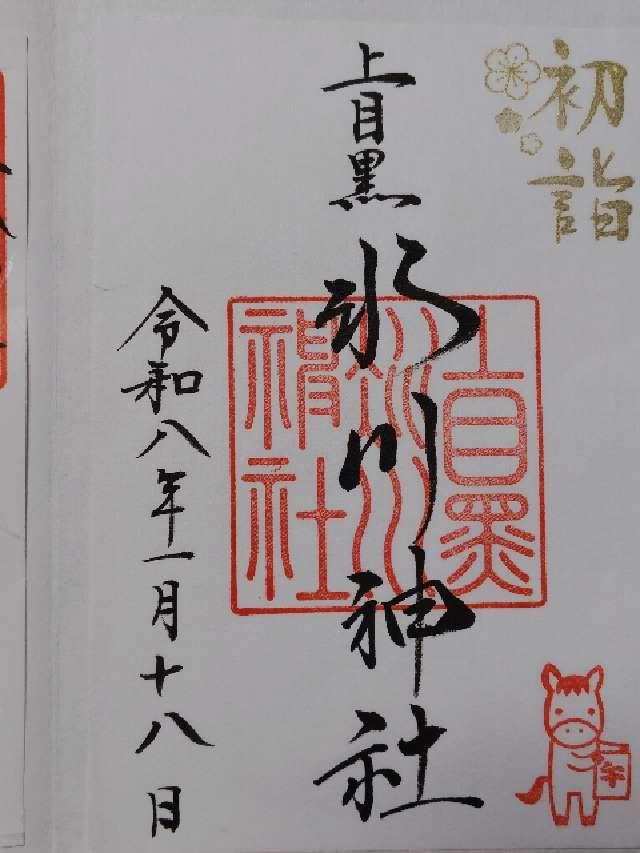 初詣
上目黒
氷川神社
上目黒
氷川
神社
令和八年一月十八日
午